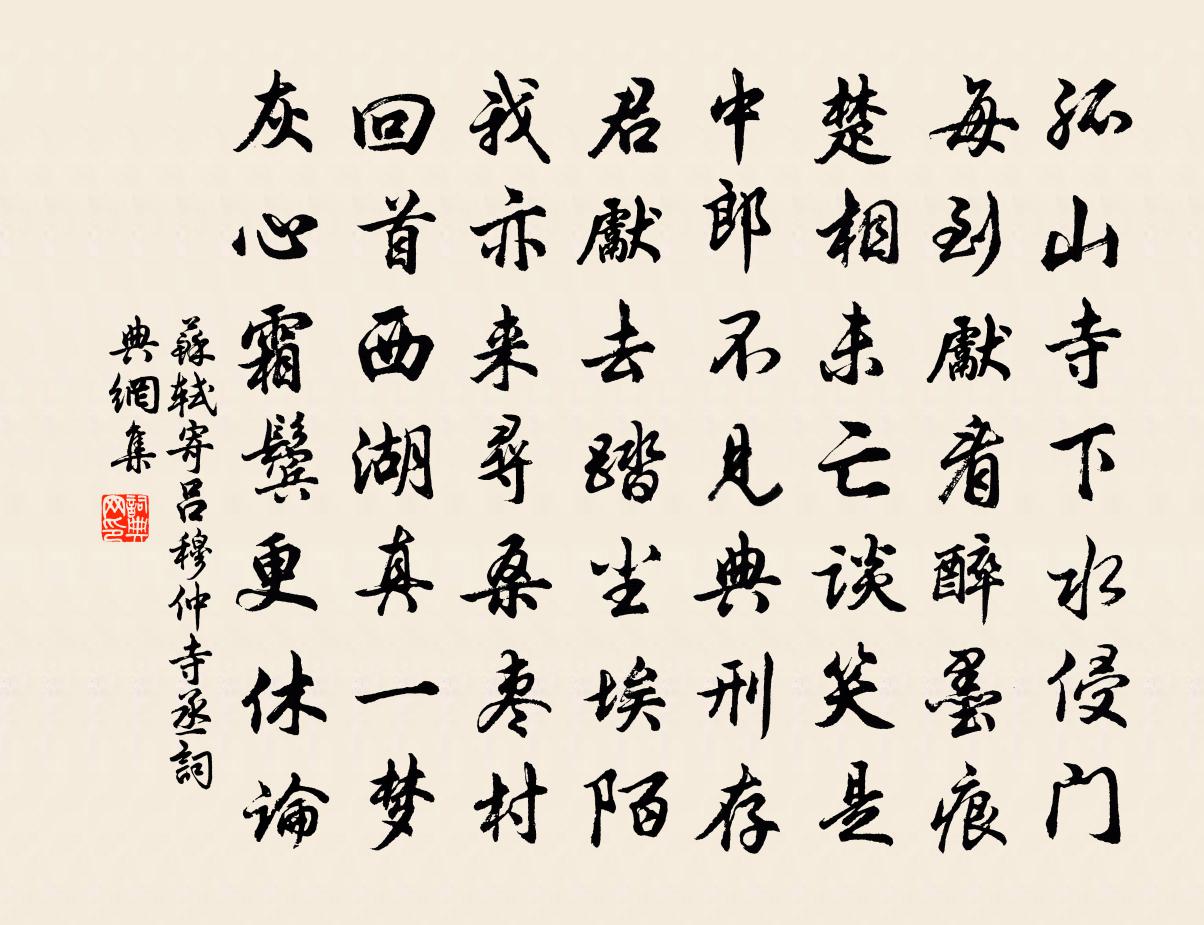 孤山寺下水侵门
每到獻看醉墨痕
楚相未亡谈笑是
中郎不見典刑存
君獻去踏尘埃陌
我亦来尋桑枣村
回首西湖真一梦
灰心霜鬓更休論
蘇軾寄呂穆仲寺丞詞
典網集
詞典网印